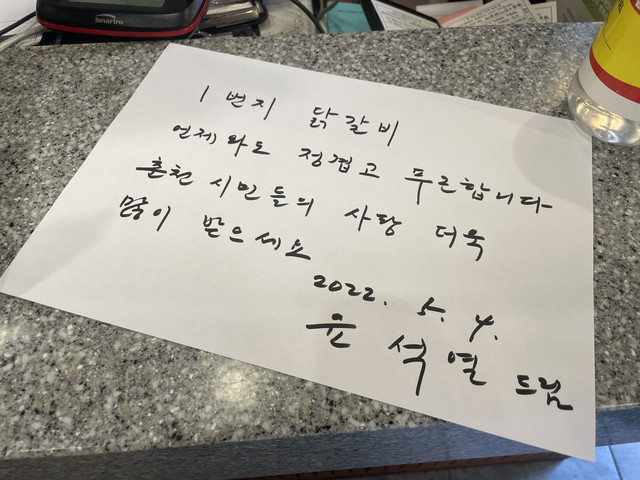 Smartro
1번지 닭갈비
언제와도 정겹고 푸근합니다
춘천 시민들의 사랑 더욱
많이 받으세요
2022. 5. 4.
윤석열 드림